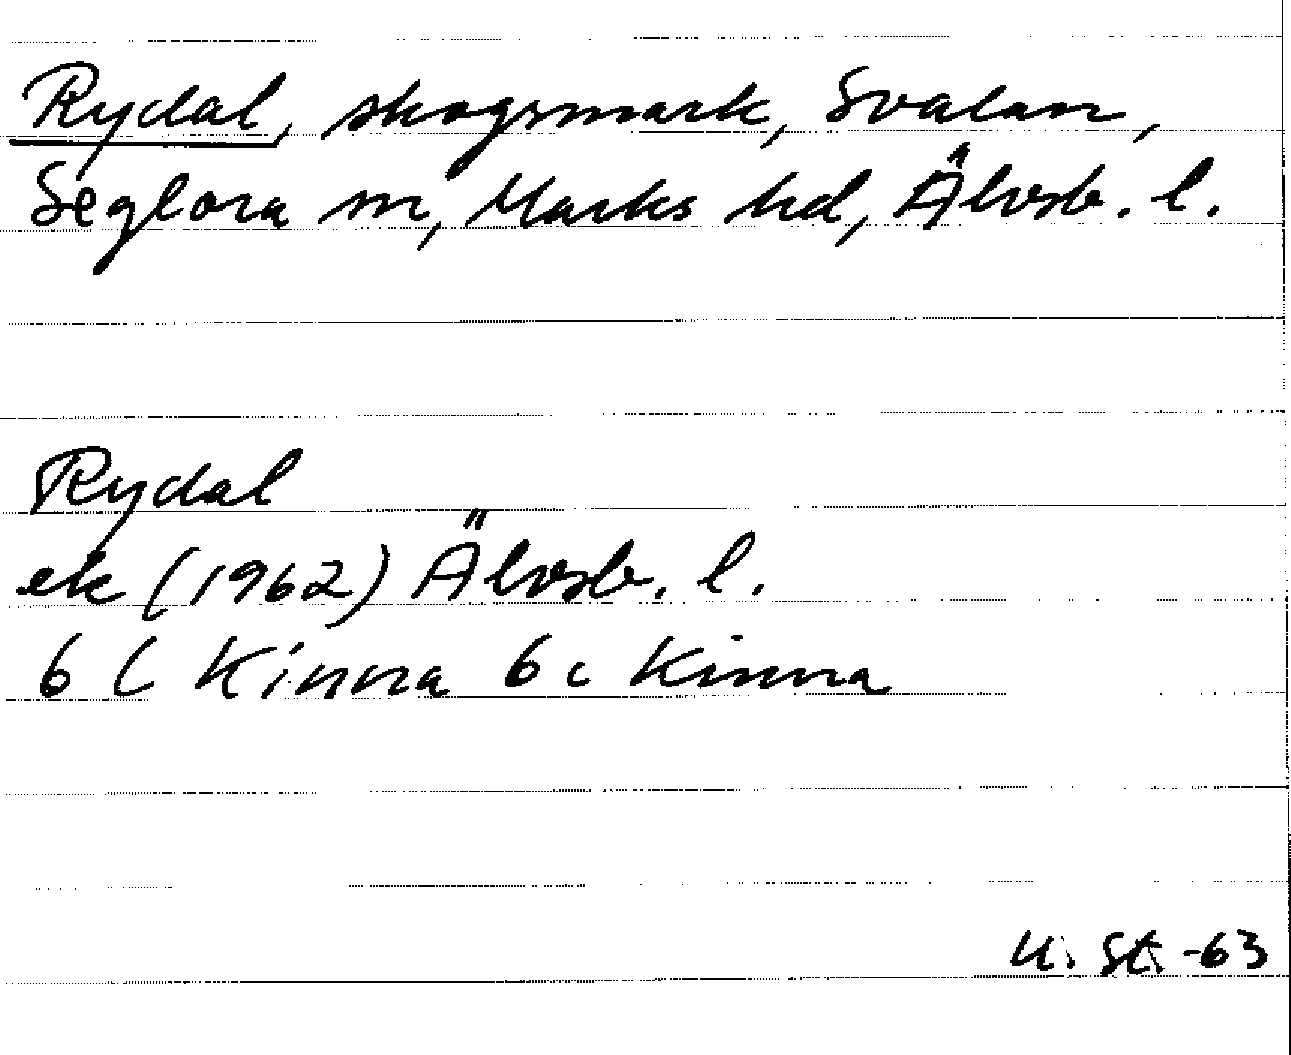 Rydal, skogsmark, Svalan,
Seglora sn, Marks hd, Älvsb. l.
Rydal
ek (1962) Älvsb. l.
6 C Kinna 6 c Kinna
U. St. -63